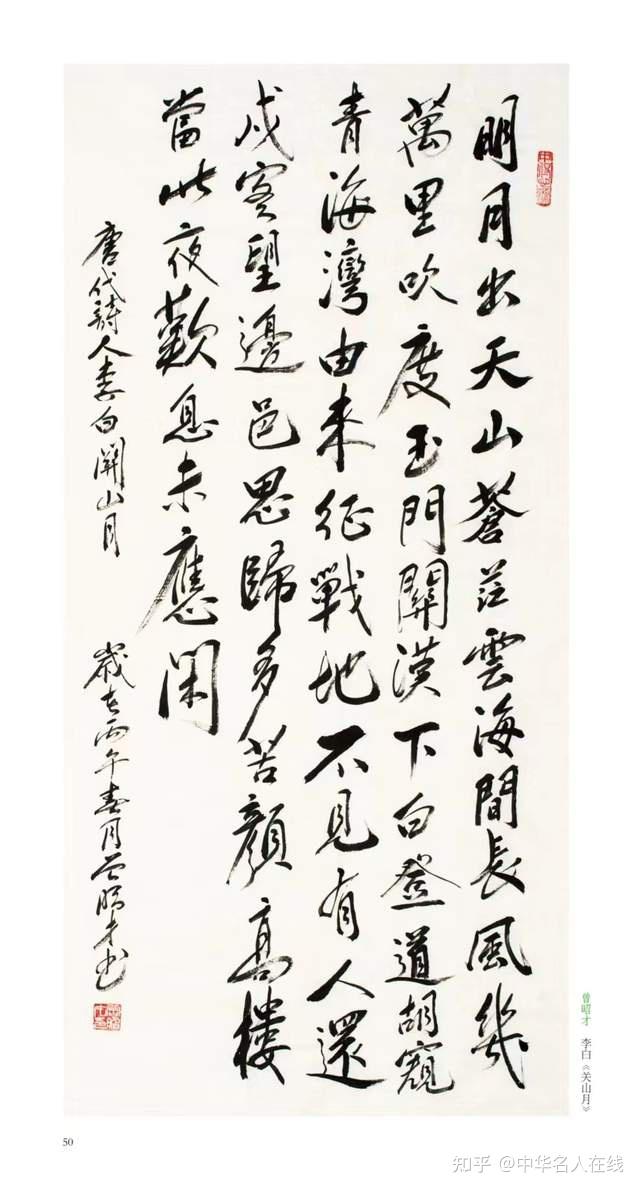 明月出天山蒼茫雲海間長風幾
萬里吹度玉門關漢下白登道胡窺
青海灣由來征戰地不見有人還
戍客望邊邑思歸多苦顏高樓
當此夜歎息未應閑
唐代詩人李白關山月
歲在丙午春月曾昭才书
曾昭才 李白《关山月》
50
知乎 @中华名人在线